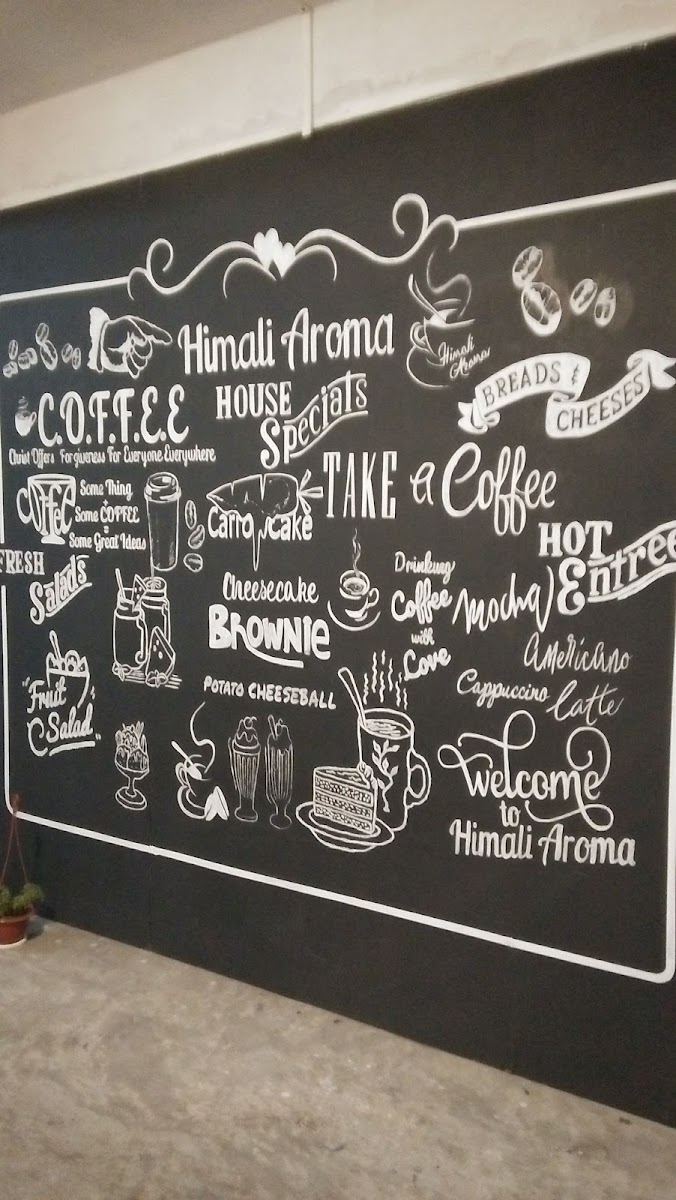 Himali Aroma
Himali
Aroma
BREADS &
CHEESES
C.O.F.F.E.E
Christ Offers Forgiveness For Everyone Everywhere
HOUSE
Specials
TAKE a Coffee
Coffee
Some Thing
+
Some COFFEE
=
Some Great Ideas
Carrot Cake
HOT
Entree
FRESH
Salads
Cheesecake
BROWNIE
Drinking
Coffee
with
Love
Mocha
Americano
Cappuccino
latte
"Fruit
Salad"
POTATO CHEESEBALL
Welcome
to
Himali Aroma